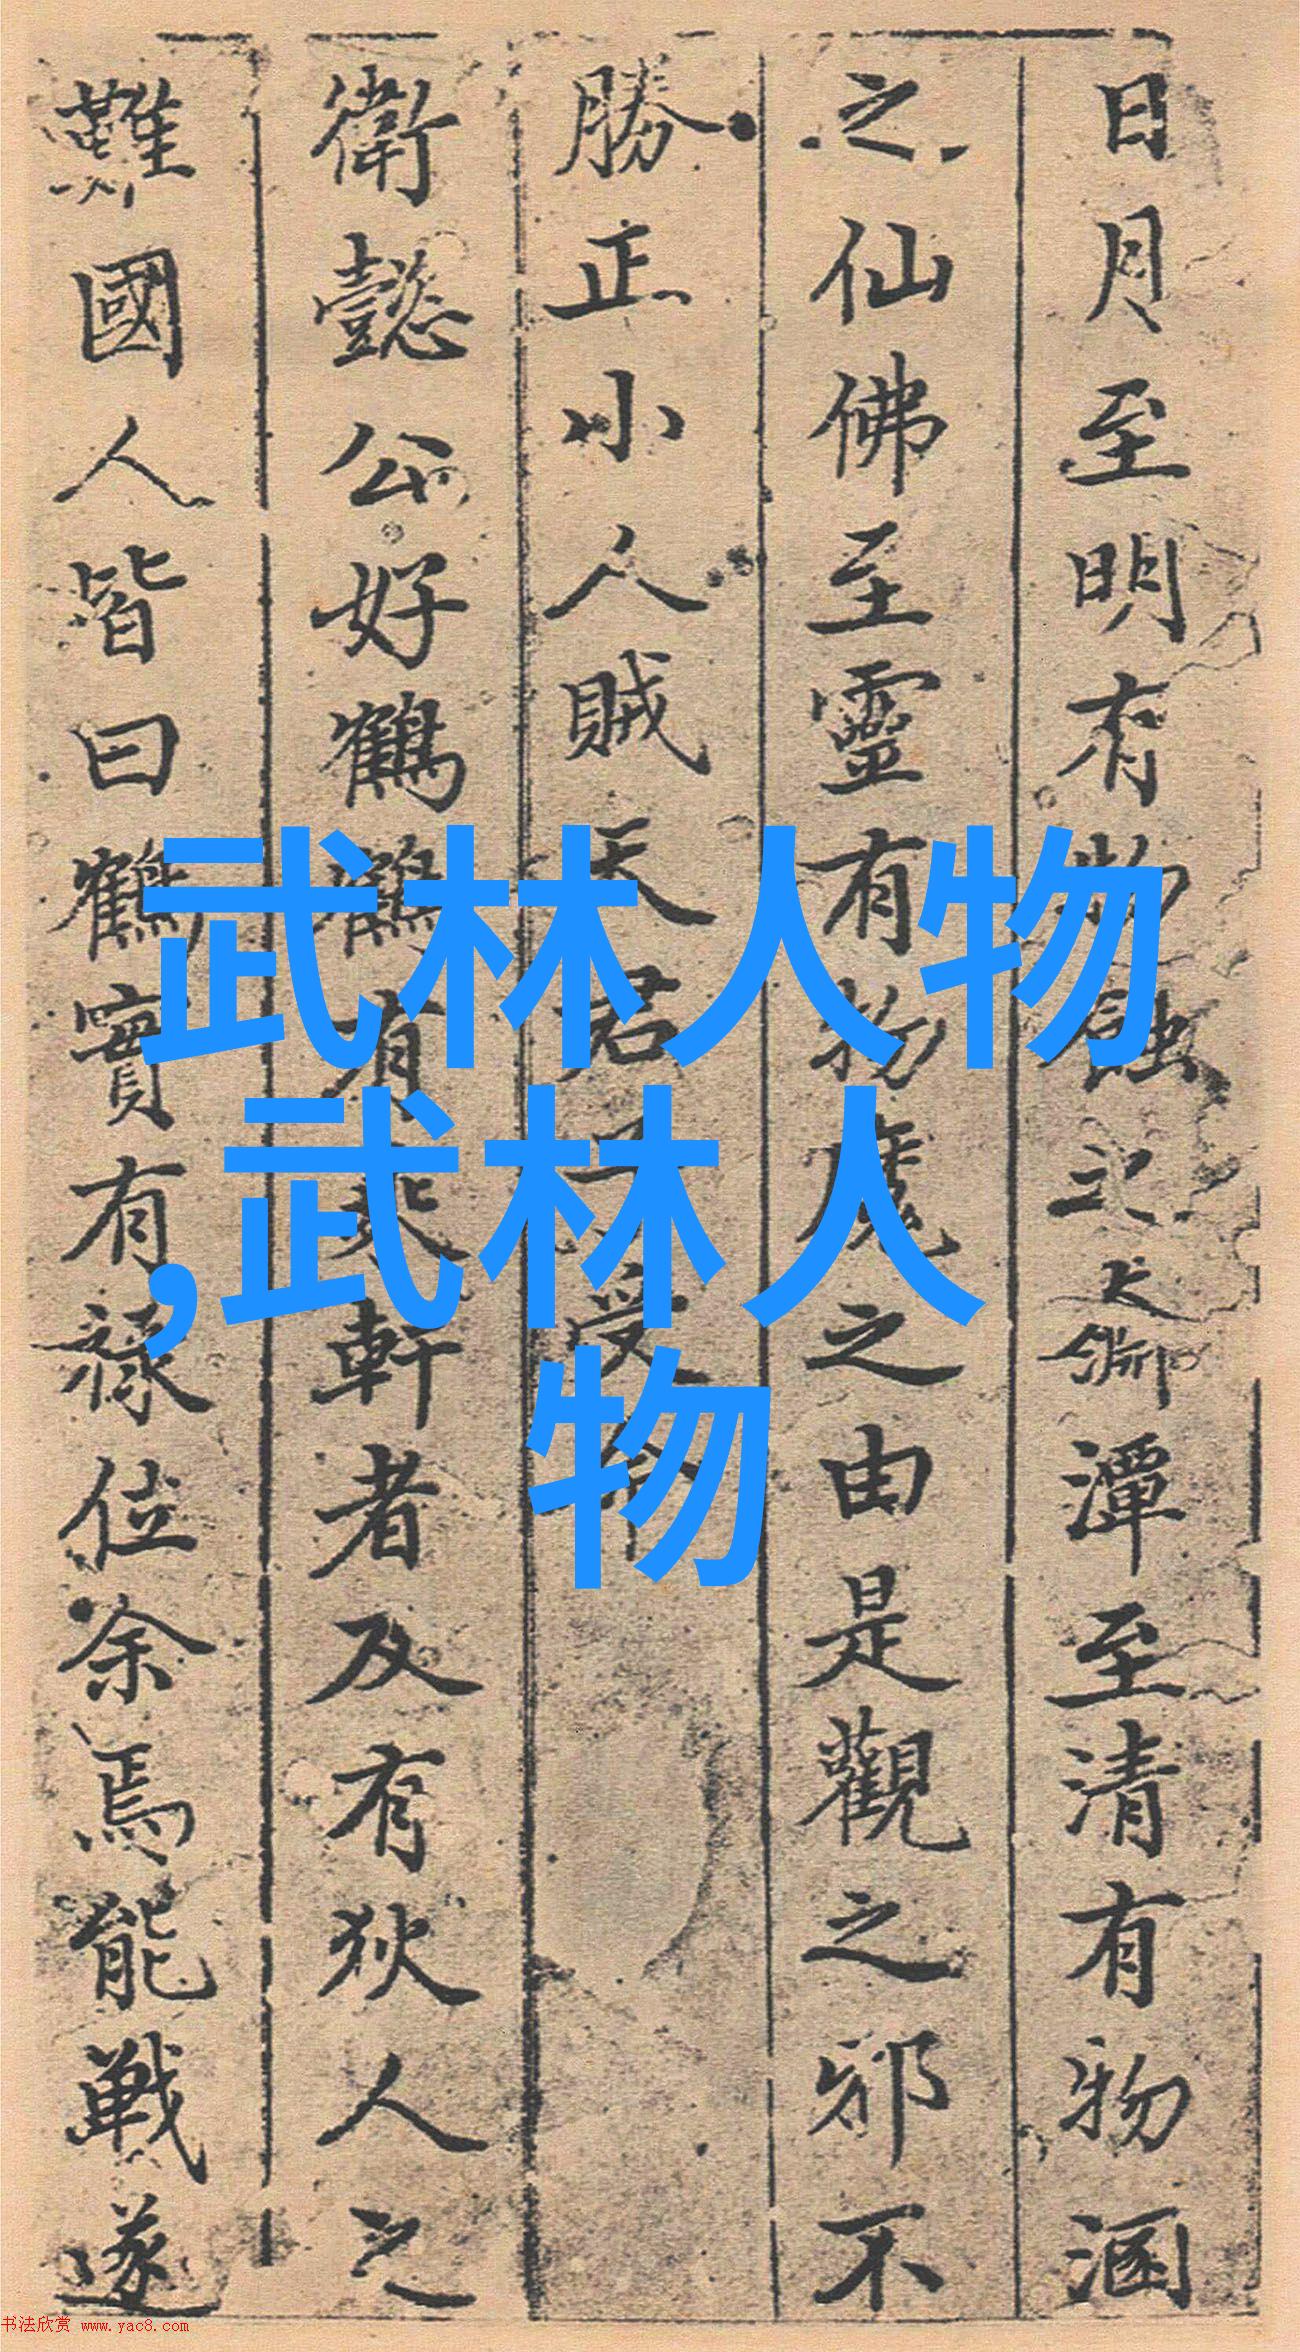 日月至明有物蝕之大淵潭至清有物涵
之仙佛至靈有物魔之由是觀之邪不
勝正小人賊天君子受命
衛懿公好鶴鶴有乘軒者及有狄人之
難國人皆曰鶴實有祿位余焉能戰遂
武林人物
,武林人
物
书法欣赏 www.yac8.com